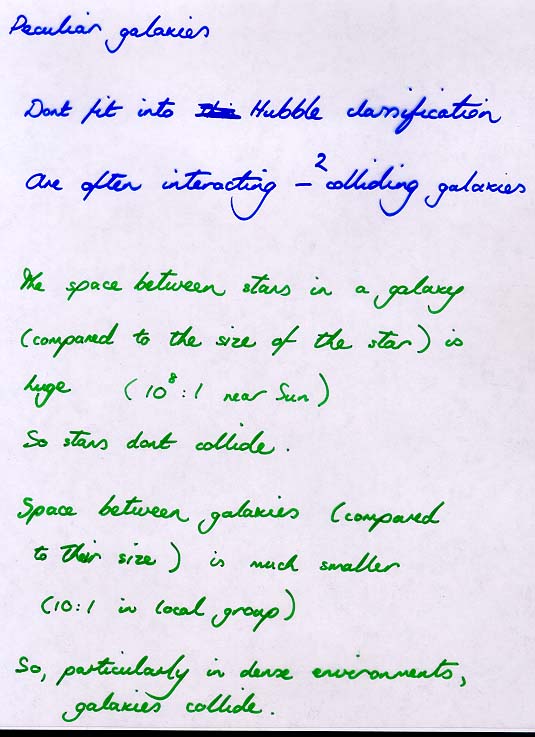 Peculiar galaxies
Dont fit into Hubble classification
Are often interacting – 2 colliding galaxies
The space between stars in a galaxy
(compared to the size of the star) is
huge (10⁸:1 near Sun)
So stars dont collide.
Space between galaxies (compared
to their size) is much smaller
(10:1 in local group)
So, particularly in dense environments,
galaxies collide.